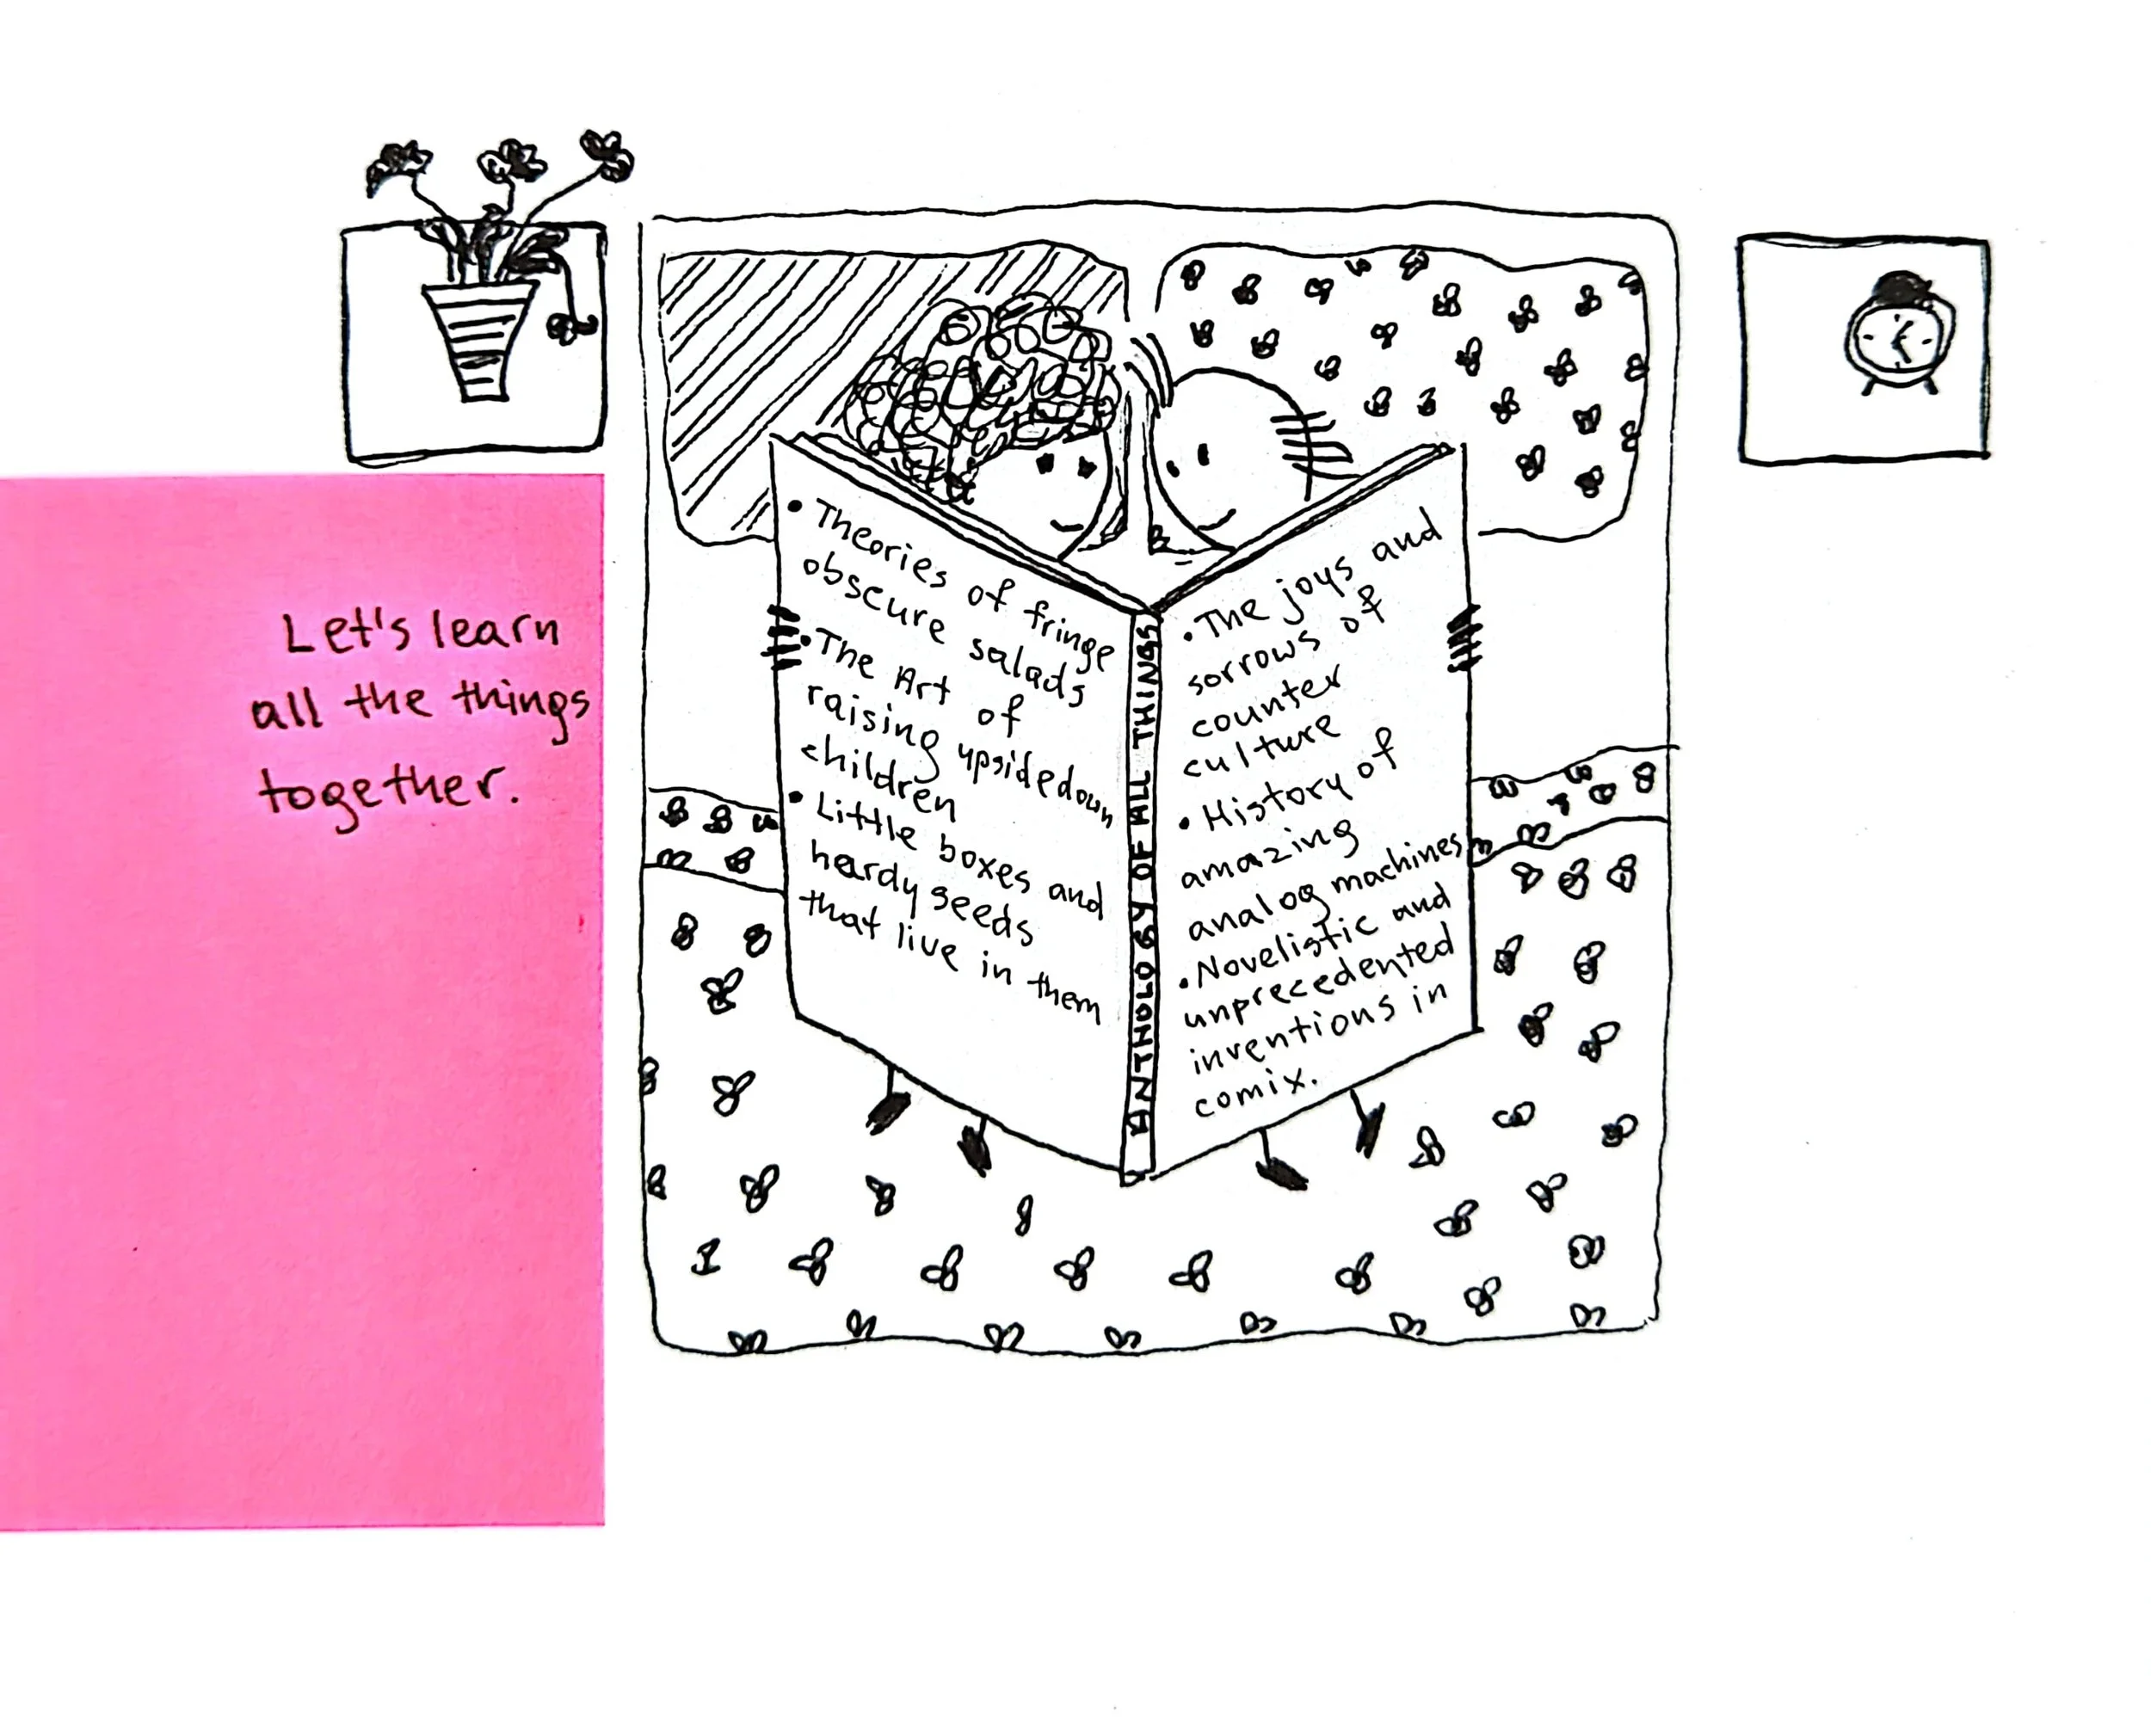 Let's learn
all the things
together.
• Theories of fringe
obscure salads
• The Art of
raising upsidedown
children
• Little boxes and
hardy seeds
that live in them
ANTHOLOGY OF ALL THINGS
• The joys and
sorrows of
counter
culture
• History of
amazing
analog machines
• Novelistic and
unprecedented
inventions in
comix.